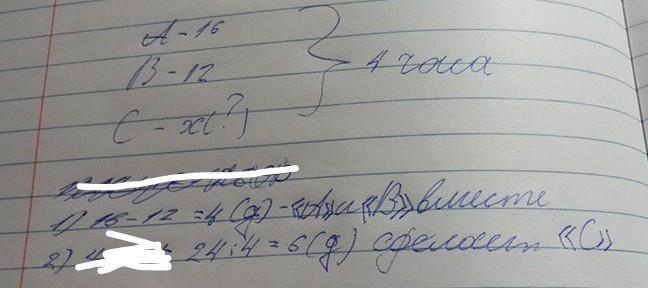 A - 16
B - 12
4 часа
C - x(?)
1) 16 - 12 = 4 (g) - «A» и «B» вместе
2) 24 : 4 = 6 (g) сделает «C»